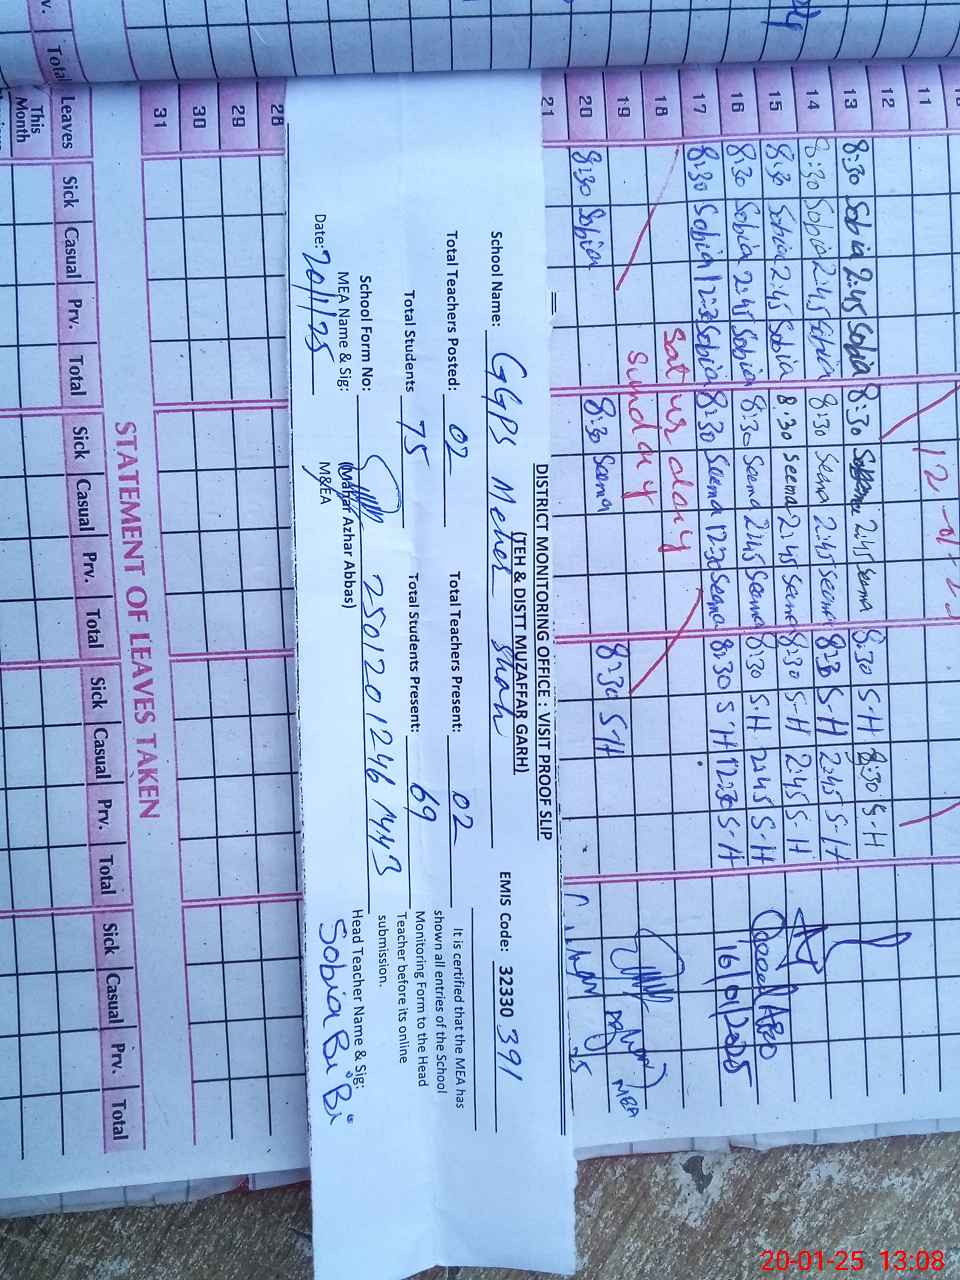 11
12
13 8:30 Sobia 2:45 Sobia 8:30 2:45 Seema 8:30 S-H 8:30 S-H
14 8:30 Sobia 2:45 Sobia 8:30 Seema 2:45 Seema 8:30 S-H 2:45 S-H
15 8:30 Sobia 2:45 Sobia 8:30 Seema 2:45 Seema 8:30 S-H 2:45 S-H
16 8:30 Sobia 2:45 Sobia 8:30 Seema 2:45 Seema 8:30 S-H 2:45 S-H
17 8:30 Sobia 12:30 Sobia 8:30 Seema 12:30 Seema 8:30 S-H 12:30 S-H
16/01/2025
18 Saturday
19 Sunday
MEA
20 8:30 Sobia 8:30 Seema 8:30 S-H
21
DISTRICT MONITORING OFFICE : VISIT PROOF SLIP
(TEH & DISTT MUZAFFAR GARH)
School Name: GGPS Meher Shah EMIS Code: 32330 391
Total Teachers Posted: 02 Total Teachers Present: 02
Total Students 75 Total Students Present: 69
School Form No: 2501201246 1443
MEA Name & Sig:
(Mahar Azhar Abbas)
M&EA
Date: 20/1/25
It is certified that the MEA has
shown all entries of the School
Monitoring Form to the Head
Teacher before its online
submission.
Head Teacher Name & Sig:
Sobia Bi Bi
28
29
30
31
STATEMENT OF LEAVES TAKEN
Leaves Sick Casual Prv. Total Sick Casual Prv. Total Sick Casual Prv. Total Sick Casual Prv. Total
This
Month
v. Total
20-01-25 13:08